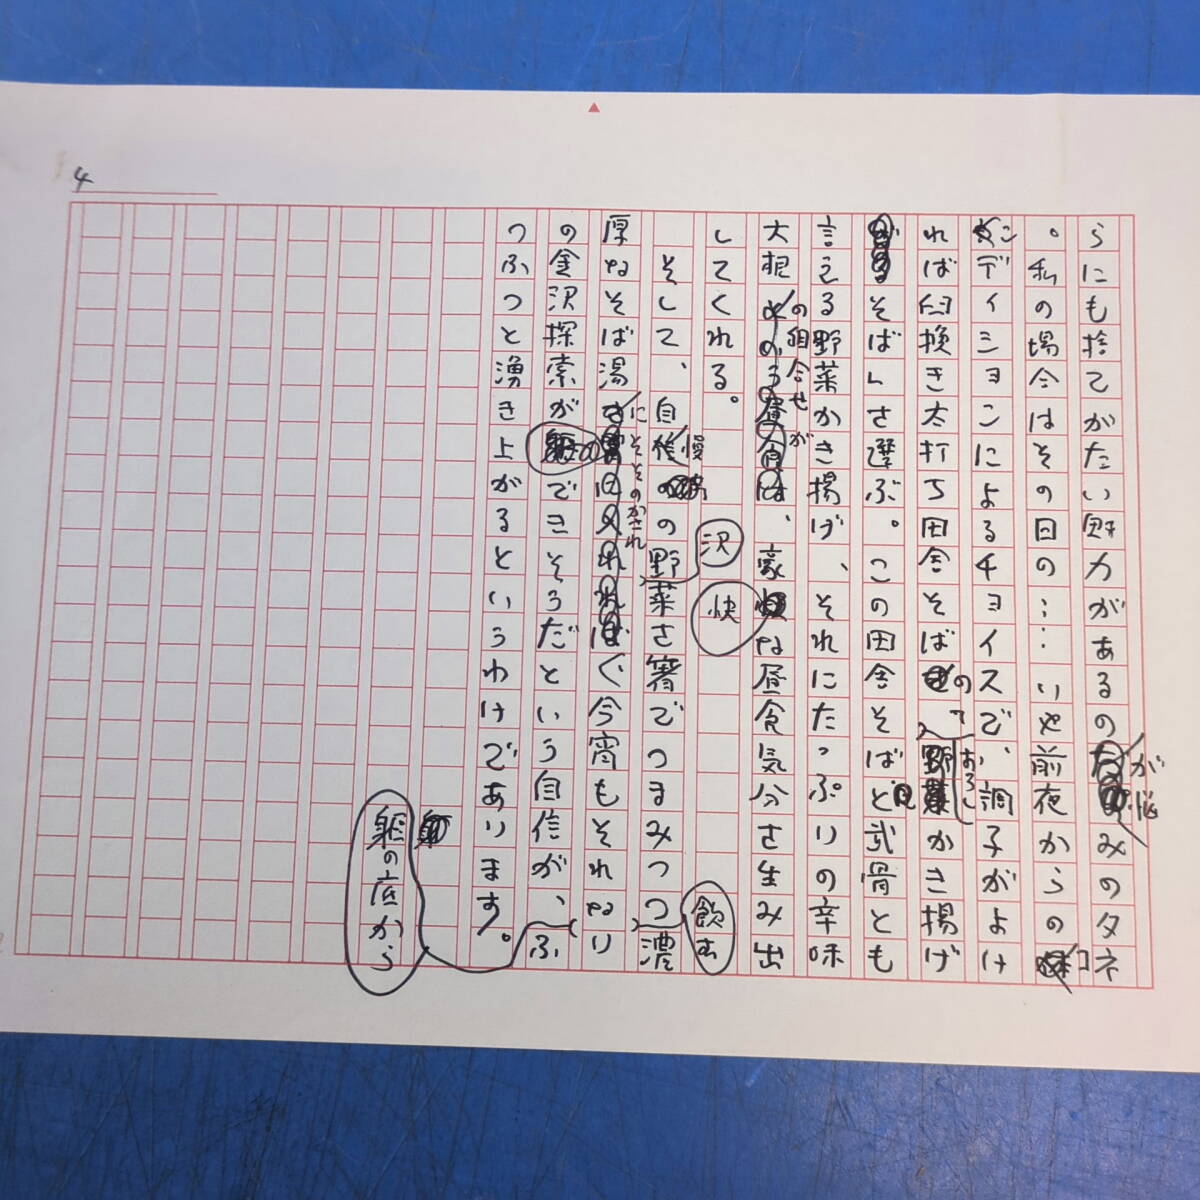 4
らにも捨てがたい魅力があるのが悩みのタネ
。私の場合はその日の……いや前夜からのコ
ンディションによるチョイスで、調子がよけ
れば臼挽き太打ち田舎そばのおろしてかき揚げ
そばしさ選ぶ。この田舎そばと武骨とも
言える野菜かき揚げ、それにたっぷりの辛味
大根の組合せが、豪快な昼食気分さ生み出
してくれる。
そして、自慢の沢野菜さ箸でつまみつつ飲む濃
厚なそば湯にそそのかされ、今宵もそれなり
の金沢探索ができそうだという自信が、躯の底からふ
つふつと湧き上がるというわけであります。